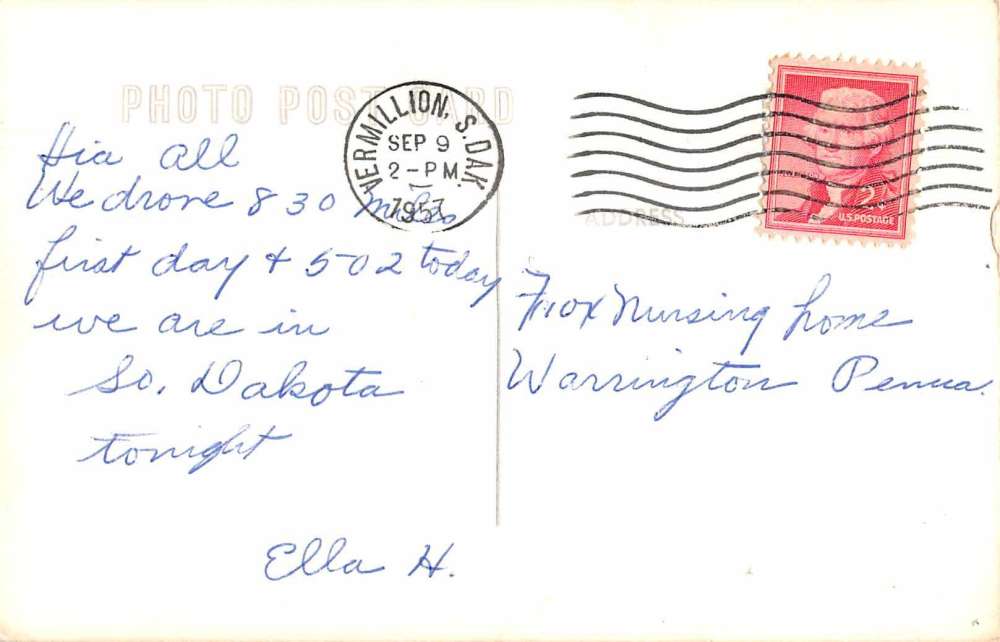 PHOTO POST CARD
VERMILLION, S. DAK.
SEP 9
2-PM
1957
2¢
U.S. POSTAGE
ADDRESS
Hia all
We drove 830 miles
first day + 502 today
we are in
So. Dakota
tonight
Ella H.
Nursing home
Warrington Penna.